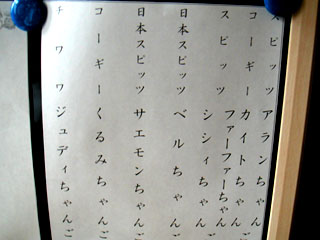 スピッツ アランちゃんご
コーギー カイトちゃんご
スピッツ ファーファーちゃん
シシィちゃん
日本スピッツ ベルちゃんご
日本スピッツ サエモンちゃんご
コーギー くるみちゃんご
チワワ ジュディちゃんご